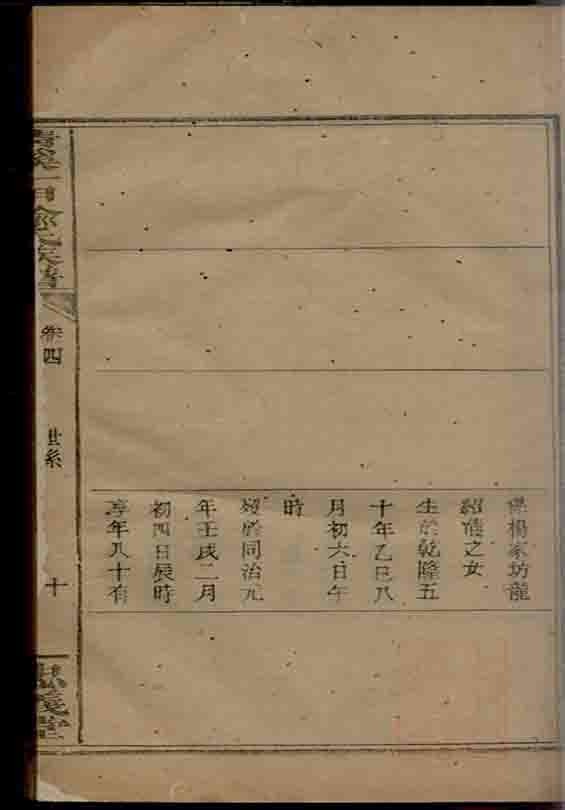 係楊家坊龍
之女
生於乾隆五
十年乙巳八
月初六日午
時
歿於同治元
年壬戌二月
初四日辰時
享年八十有
卷四
世系
十